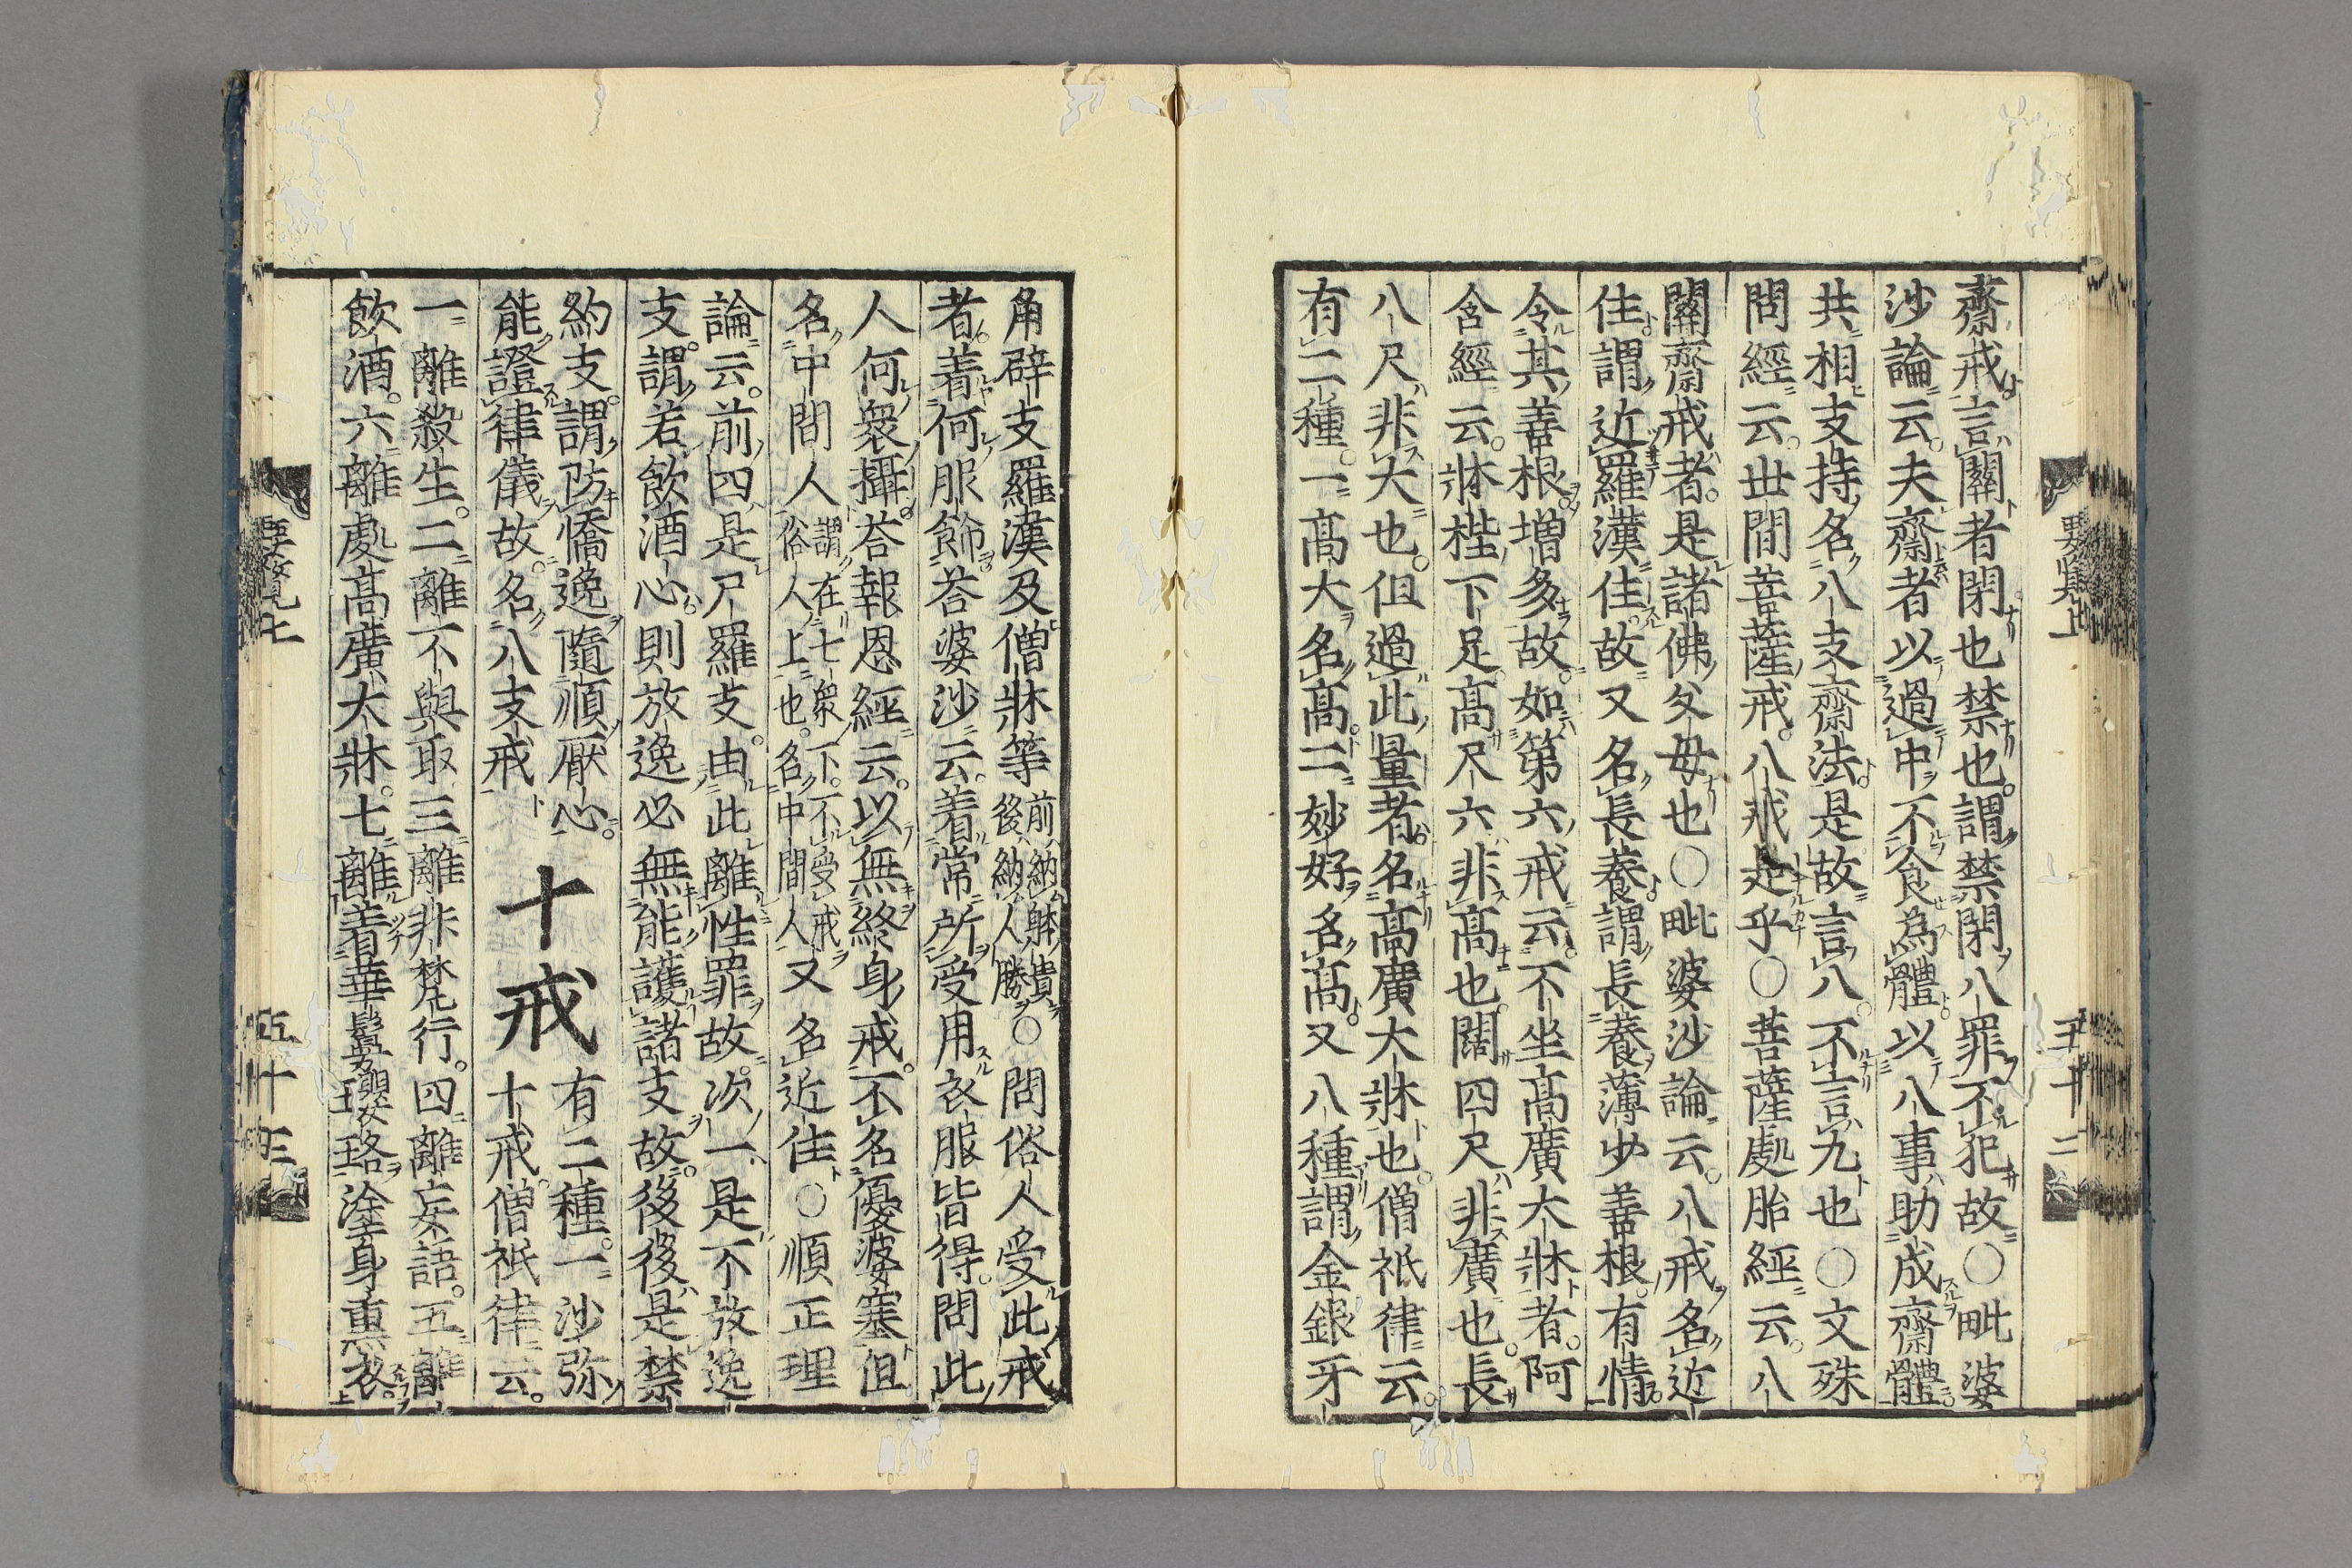 齋戒言關者閉也禁也。謂禁閉八罪不犯故○毗婆
沙論云。夫齋者以過中不食為體。以八事助成齋體
共相支持名八支齋法。是故言八。不言九也○文殊
問經云。世間菩薩戒。八戒是乎○菩薩處胎經云。八
關齋戒者。是諸佛父母也○毗婆沙論云。八戒名近
住。謂近羅漢住。故又名長養。謂長養薄少善根。有情
令其善根增多故。如第六戒云。不坐高廣大牀者。阿
含經云。牀梐下足高尺六非高也。闊四尺非廣也。長
八尺非大也。但過此量者。名高廣大牀也。僧祇律云。
有二種。一高大名高。二妙好名高。又八種謂金銀牙
五十二
角辟支羅漢及僧牀等前納躰貴後納人勝○問俗人受此戒
者。着何服飾荅婆沙云。着常所受用衣服皆得。問此
人何衆攝荅報恩經云。以無終身戒。不名優婆塞但
名中間人謂在七衆下。不受戒俗人上也。名中間人又名近住○順正理
論云。前四是尸羅支。由此離性罪故。次一是不放逸
支。謂若飲酒心。則放逸必無能護諸支故。後後是禁
約支。謂防憍逸隨順厭心。有二種。一沙弥
能證律儀故。名八支戒 十戒 十戒僧祇律云。
一離殺生。二離不與取三離非梵行。四離妄語。五離
飲酒。六離處高廣大牀。七離着華鬘瓔珞塗身熏衣。
要覽七 五十三